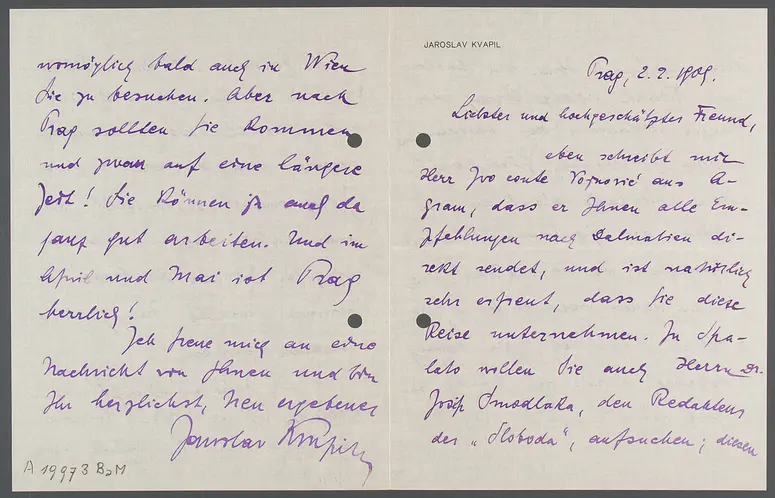 JAROSLAV KVAPIL
Prag, 2. 2. 1909.
Liebster und hochgeschätzter Freund,
eben schreibt mir
Herr Ivo conte Vojnović aus A-
gram, dass er Ihnen alle Em-
pfehlungen nach Dalmatien di-
rekt sendet, und ist natürlich
sehr erfreut, dass Sie diese
Reise unternehmen. In Spa-
lato wollen Sie auch Herrn Dr.
Josip Smodlaka, den Redakteur
der „Sloboda“, aufsuchen; diesen
womöglich bald auch in Wien
Sie zu besuchen. Aber nach
Prag sollten Sie kommen
und zwar auf eine längere
Zeit! Sie können ja auch da
ganz gut arbeiten. Und im
April und Mai ist Prag
herrlich!
Ich freue mich an eine
Nachricht von Ihnen und bin
Ihr herzlichst, treu ergebener
Jaroslav Kvapil
A 19973 BaM